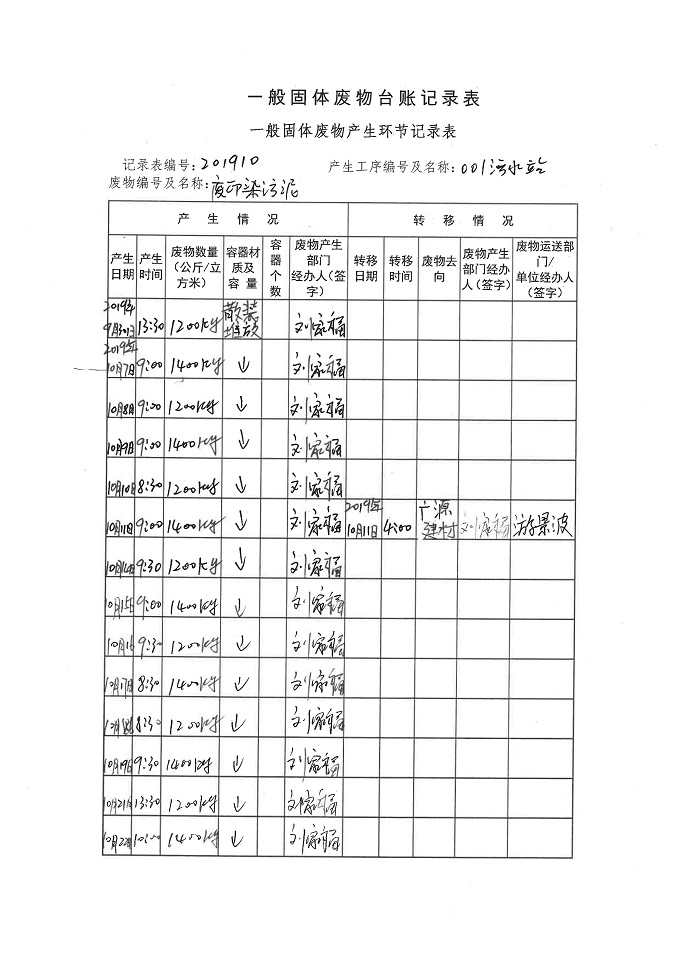 一般固体废物台账记录表
一般固体废物产生环节记录表
记录表编号：201910 产生工序编号及名称：001污水站
废物编号及名称：废印染污泥
产生情况 转移情况
产生日期 产生时间 废物数量（公斤/立方米） 容器材质及容量 容器个数 废物产生部门经办人（签字） 转移日期 转移时间 废物去向 废物产生部门经办人（签字） 废物运送部门/单位经办人（签字）
2019年9月30日 13:30 1200kg 散装堆放 刘家福
2019年10月7日 9:00 1400kg ↓ 刘家福
10月8日 9:00 1200kg ↓ 刘家福
10月9日 9:00 1400kg ↓ 刘家福
10月10日 8:30 1200kg ↓ 刘家福
10月11日 9:00 1400kg ↓ 刘家福 2019年10月11日 4:00 广源建材 刘家福 游景波
10月14日 9:30 1200kg ↓ 刘家福
10月15日 9:00 1400kg ↓ 刘家福
10月16 9:30 1200kg ↓ 刘家福
10月17日 8:30 1400kg ↓ 刘家福
10月18日 8:30 1200kg ↓ 刘家福
10月19日 9:30 1400kg ↓ 刘家福
10月21日 13:30 1200kg ↓ 刘家福
10月22日 10:00 1400kg ↓ 刘家福